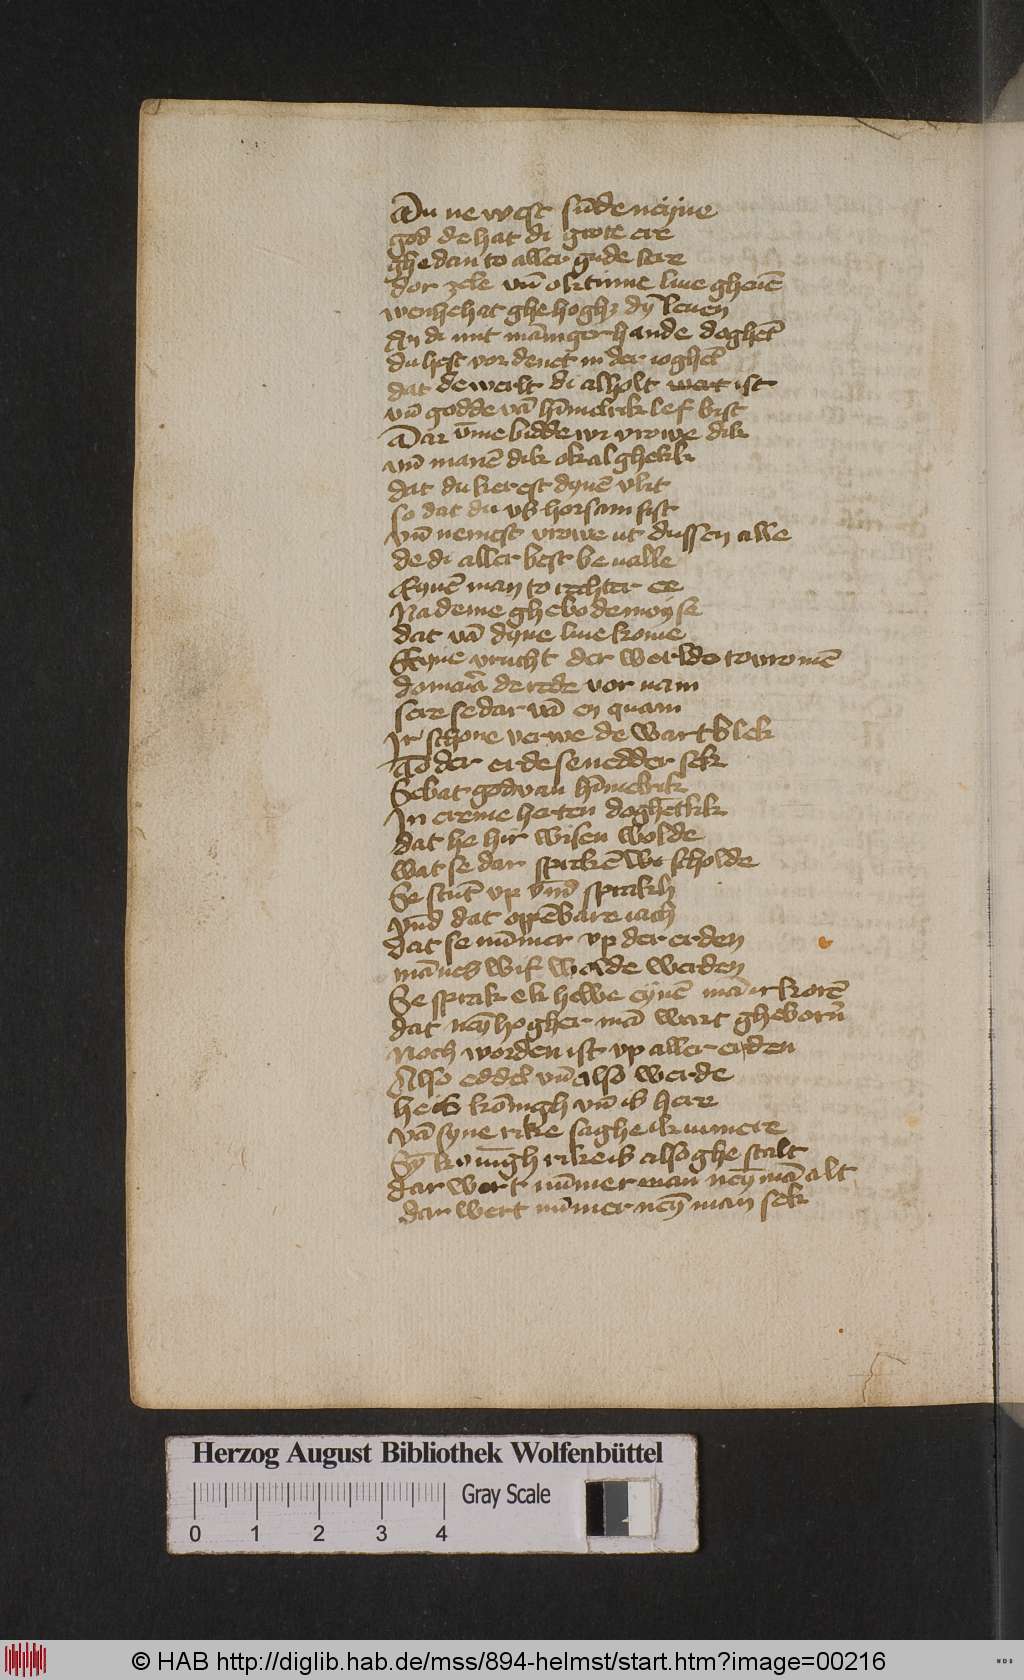 Du ne west sūde neijne
god de hat di grote ere
ghe dan to aller gude lere
dor zele vn̄ ok tinne liue gheuē
wenhe hat ghe hoghꝫ dȳ leuen
An di mit mānigerhande doghēt
du hest vor denet in der ioghēt
dat de werlt di alholt wert ist
vn̄ godde vā hīmelrik lef bist
Dar v̄me bidde wi vrowe dik
vn̄ manē dik ok al ghelik
dat du kerest dynē vlit
so dat du vs horsam sist
vn̄ nemest vrowe ut dussen alle
de di aller best be ualle
Eynē man to rechter ee
Na deme ghebode moyse
dat vā dyne liue kome
Eyne vrucht der werlde to vromē
do maria de rede vor nam
sere se dar vā en quam
Ir schone verwe de wart blek
To der erde se nedder sek
Se bat god van hīmelrik
In ereme herten doghētlik
dat he hir wisen wolde
wat se dar sprekē wi scholde
Se stūt vp vn̄d sprakh
vnd dat opēbare iach
dat se nūmer vp der erden
mānes wif wolde werden
Se sprak ek hebbe eynē mā irkorē
dat neȳ hogher mā wart gheborn̄
Noch worden ist vp aller erden
Also eddel vn̄ also werde
he is kōnigh vn̄ is here
vā syne rike saghe ik ummere
Sȳ konīgh rike is also ghe stalt
dar wert nūmer man neȳ mā alt
dar wert nūmer neȳ man sek
Herzog August Bibliothek Wolfenbüttel
Gray Scale
0 1 2 3 4
© HAB http://diglib.hab.de/mss/894-helmst/start.htm?image=00216